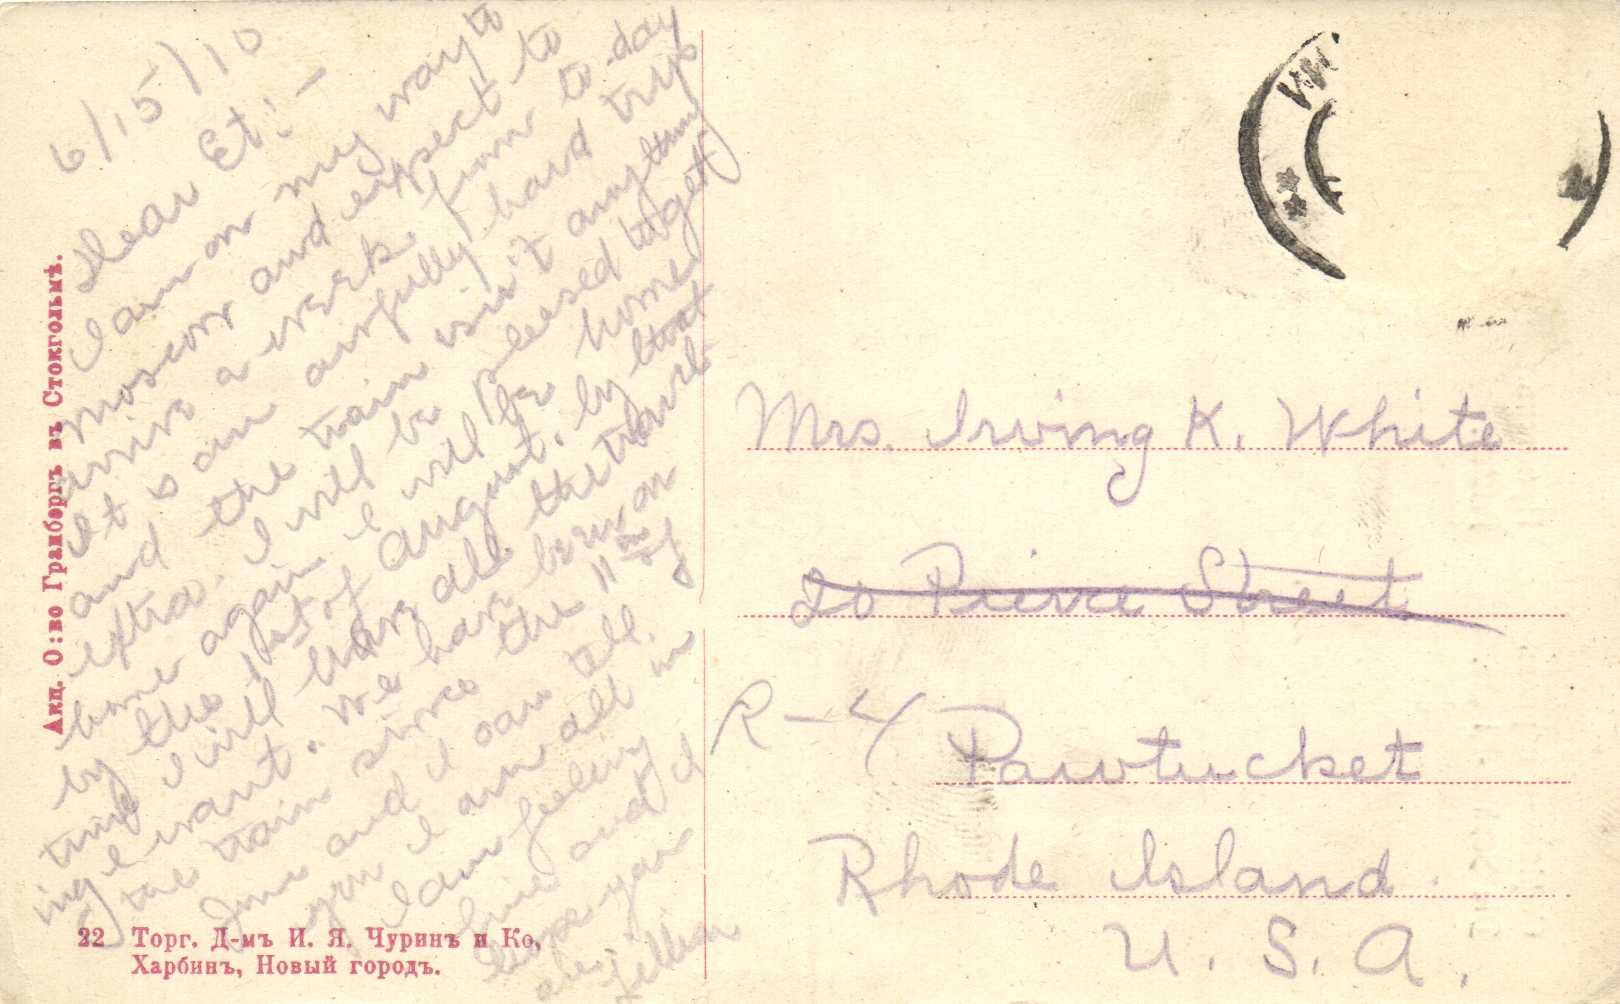 6/15/10
Dear Et:-
I am on my way to
Moscow and expect to
arrive a week from to-day
It is an awfully hard trip
and the train isn't anything
extra. I will be pleased to get
home again I will be home
by the 1st of August. by that
time I will have all the travel-
ing I want. We have been on
the train since the 11th of
June and I can tell
you I am all in
I am feeling
fine and I
hope you
are
Mrs. Irving K. White
20 Pierce Street
R-4 Pawtucket
Rhode Island
U. S. A.
Акц. О:во Гранбергъ въ Стокгольмѣ.
22 Торг. Д-мъ И. Я. Чуринъ и Ко,
Харбинъ, Новый городъ.